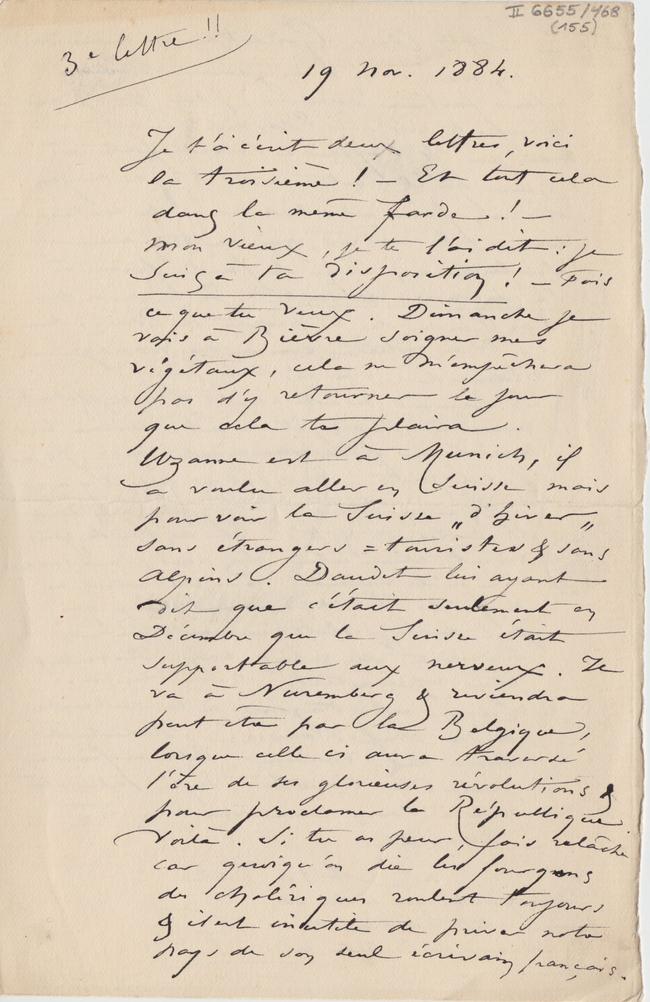 II 6655/468
(155)
3e lettre !!
19 Nov. 1884.
Je t'ai écrit deux lettres, voici
la troisième ! — Et tout cela
dans la même farde ! —
mon vieux, je te l'ai dit : je
suis à ta disposition ! — Fais
ce que tu veux. Dimanche je
vais à Bièvre soigner mes
végétaux, cela ne m'empêchera
pas d'y retourner le jour
que cela te plaira.
Uzanne est à Munich, il
a voulu aller en Suisse mais
pour voir la Suisse „d'hiver„
sans étrangers = touristes & sans
alpins. Daudet lui ayant
dit que c'était seulement en
Décembre que la Suisse était
supportable aux nerveux. Il
va à Nuremberg & reviendra
peut être par la Belgique,
lorsque celle ci aura traversé
l'ère de ses glorieuses révolutions &
pour proclamer la République
voilà. Si tu as peur, fais relâche
car quoiqu'on die les fourgons
des cholériques roulent toujours
& il est inutile de priver notre
pays de son seul écrivain français.